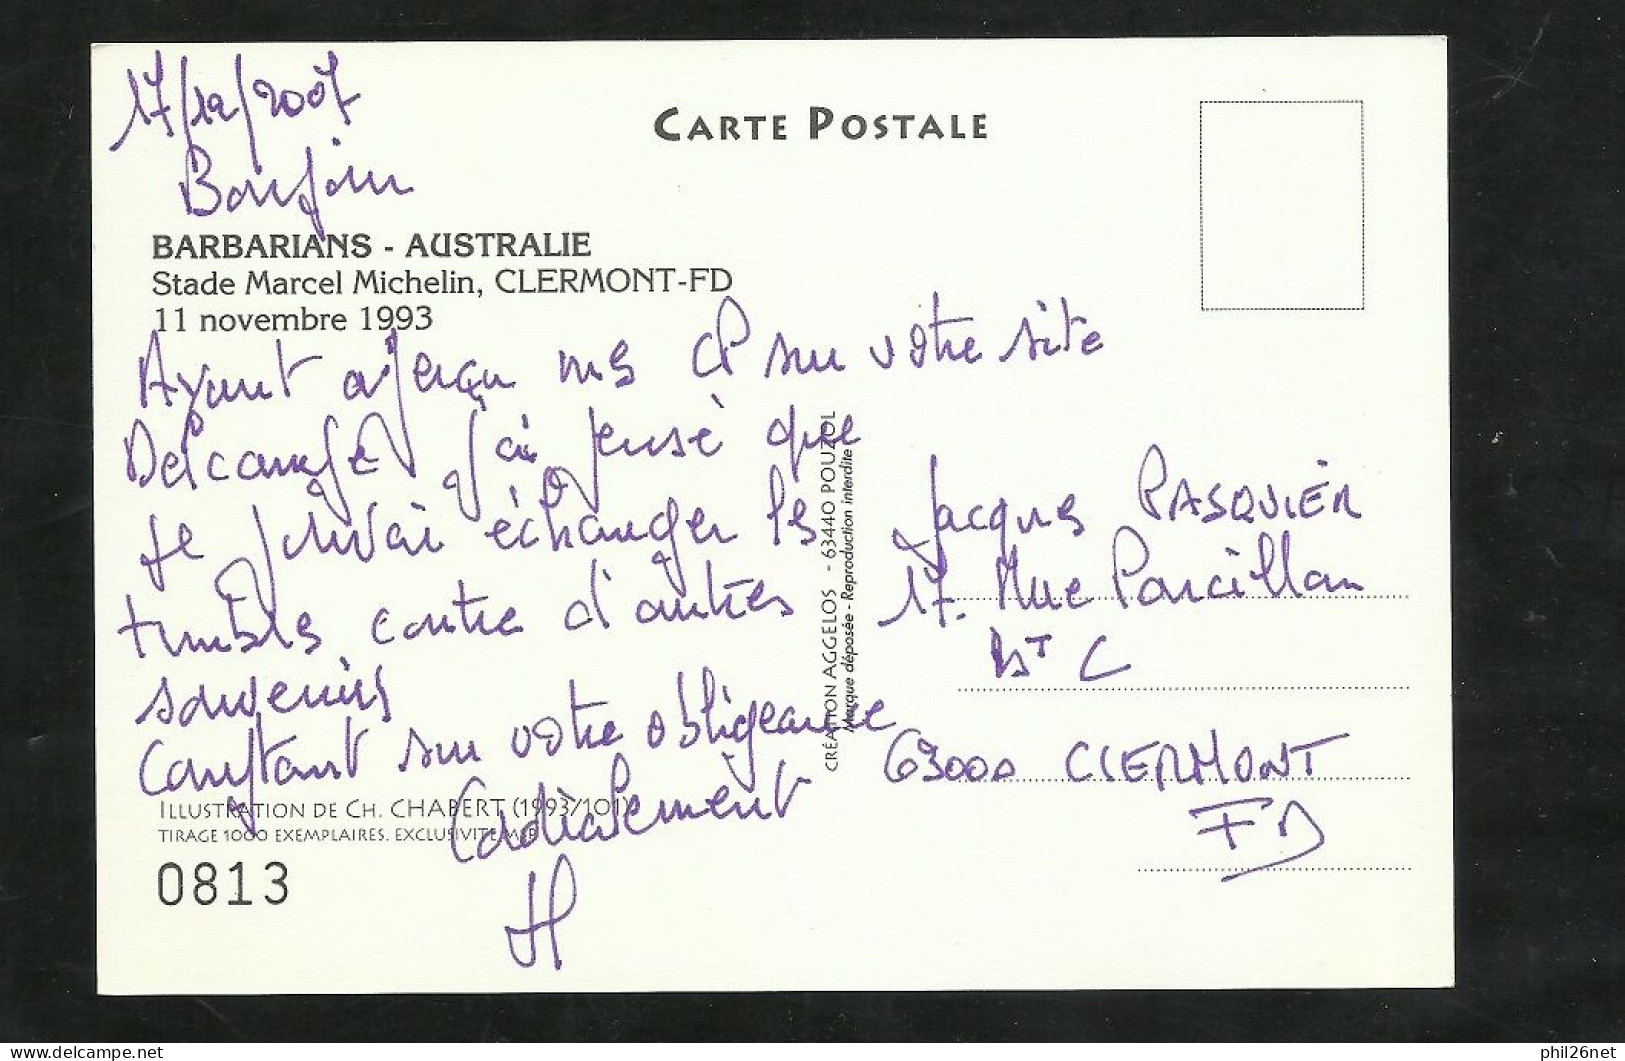 17/12/2007
CARTE POSTALE
Bonjour
BARBARIANS - AUSTRALIE
Stade Marcel Michelin, CLERMONT-FD
11 novembre 1993
Ayant aperçu mes CP sur votre site
Delcampe j'ai pensé que
je pouvai échanger les
timbres contre d'autres
souvenirs
Comptant sur votre obligeance
Cordialement
JP
ILLUSTRATION DE CH. CHABERT (1993/101)
TIRAGE 1000 EXEMPLAIRES. EXCLUSIVITE
0813
CRÉATION AGGELOS - 63440 POUZOL
Marque déposée - Reproduction interdite
Jacques PASQUIER
17. Rue
BT C
63000 CLERMONT
FD
phil26net
https://www.delcampe.net